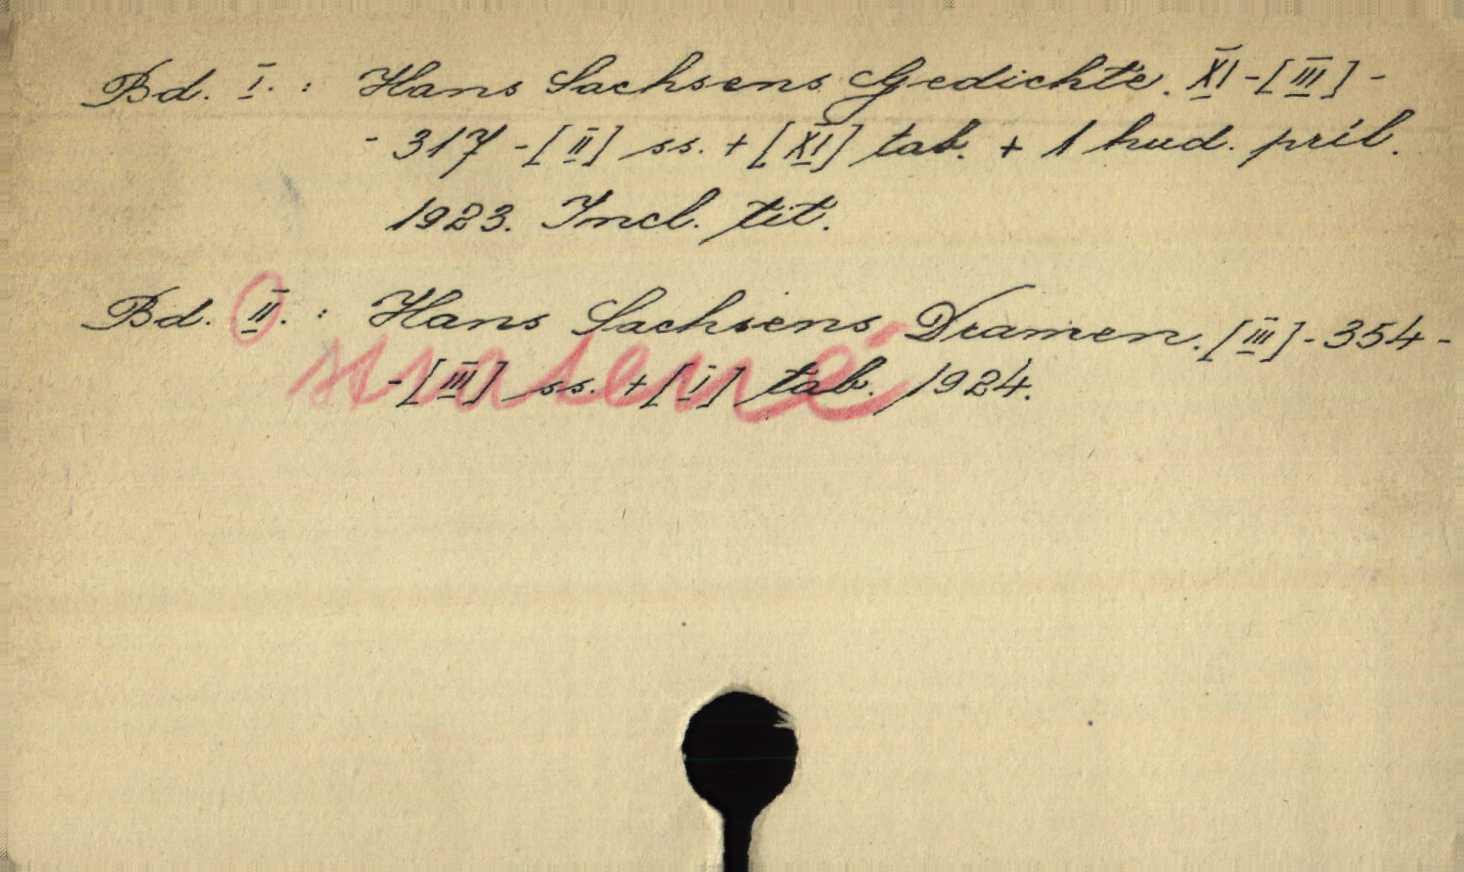 Bd. I. : Hans Sachsens Gedichte. XI-[III]-
- 317 -[II] ss. + [XI] tab. + 1 hud. príl.
1923. Incl. tit.
Bd. II. : Hans Sachsens Dramen. [III]-354-
-[III] ss. + [I] tab. 1924.